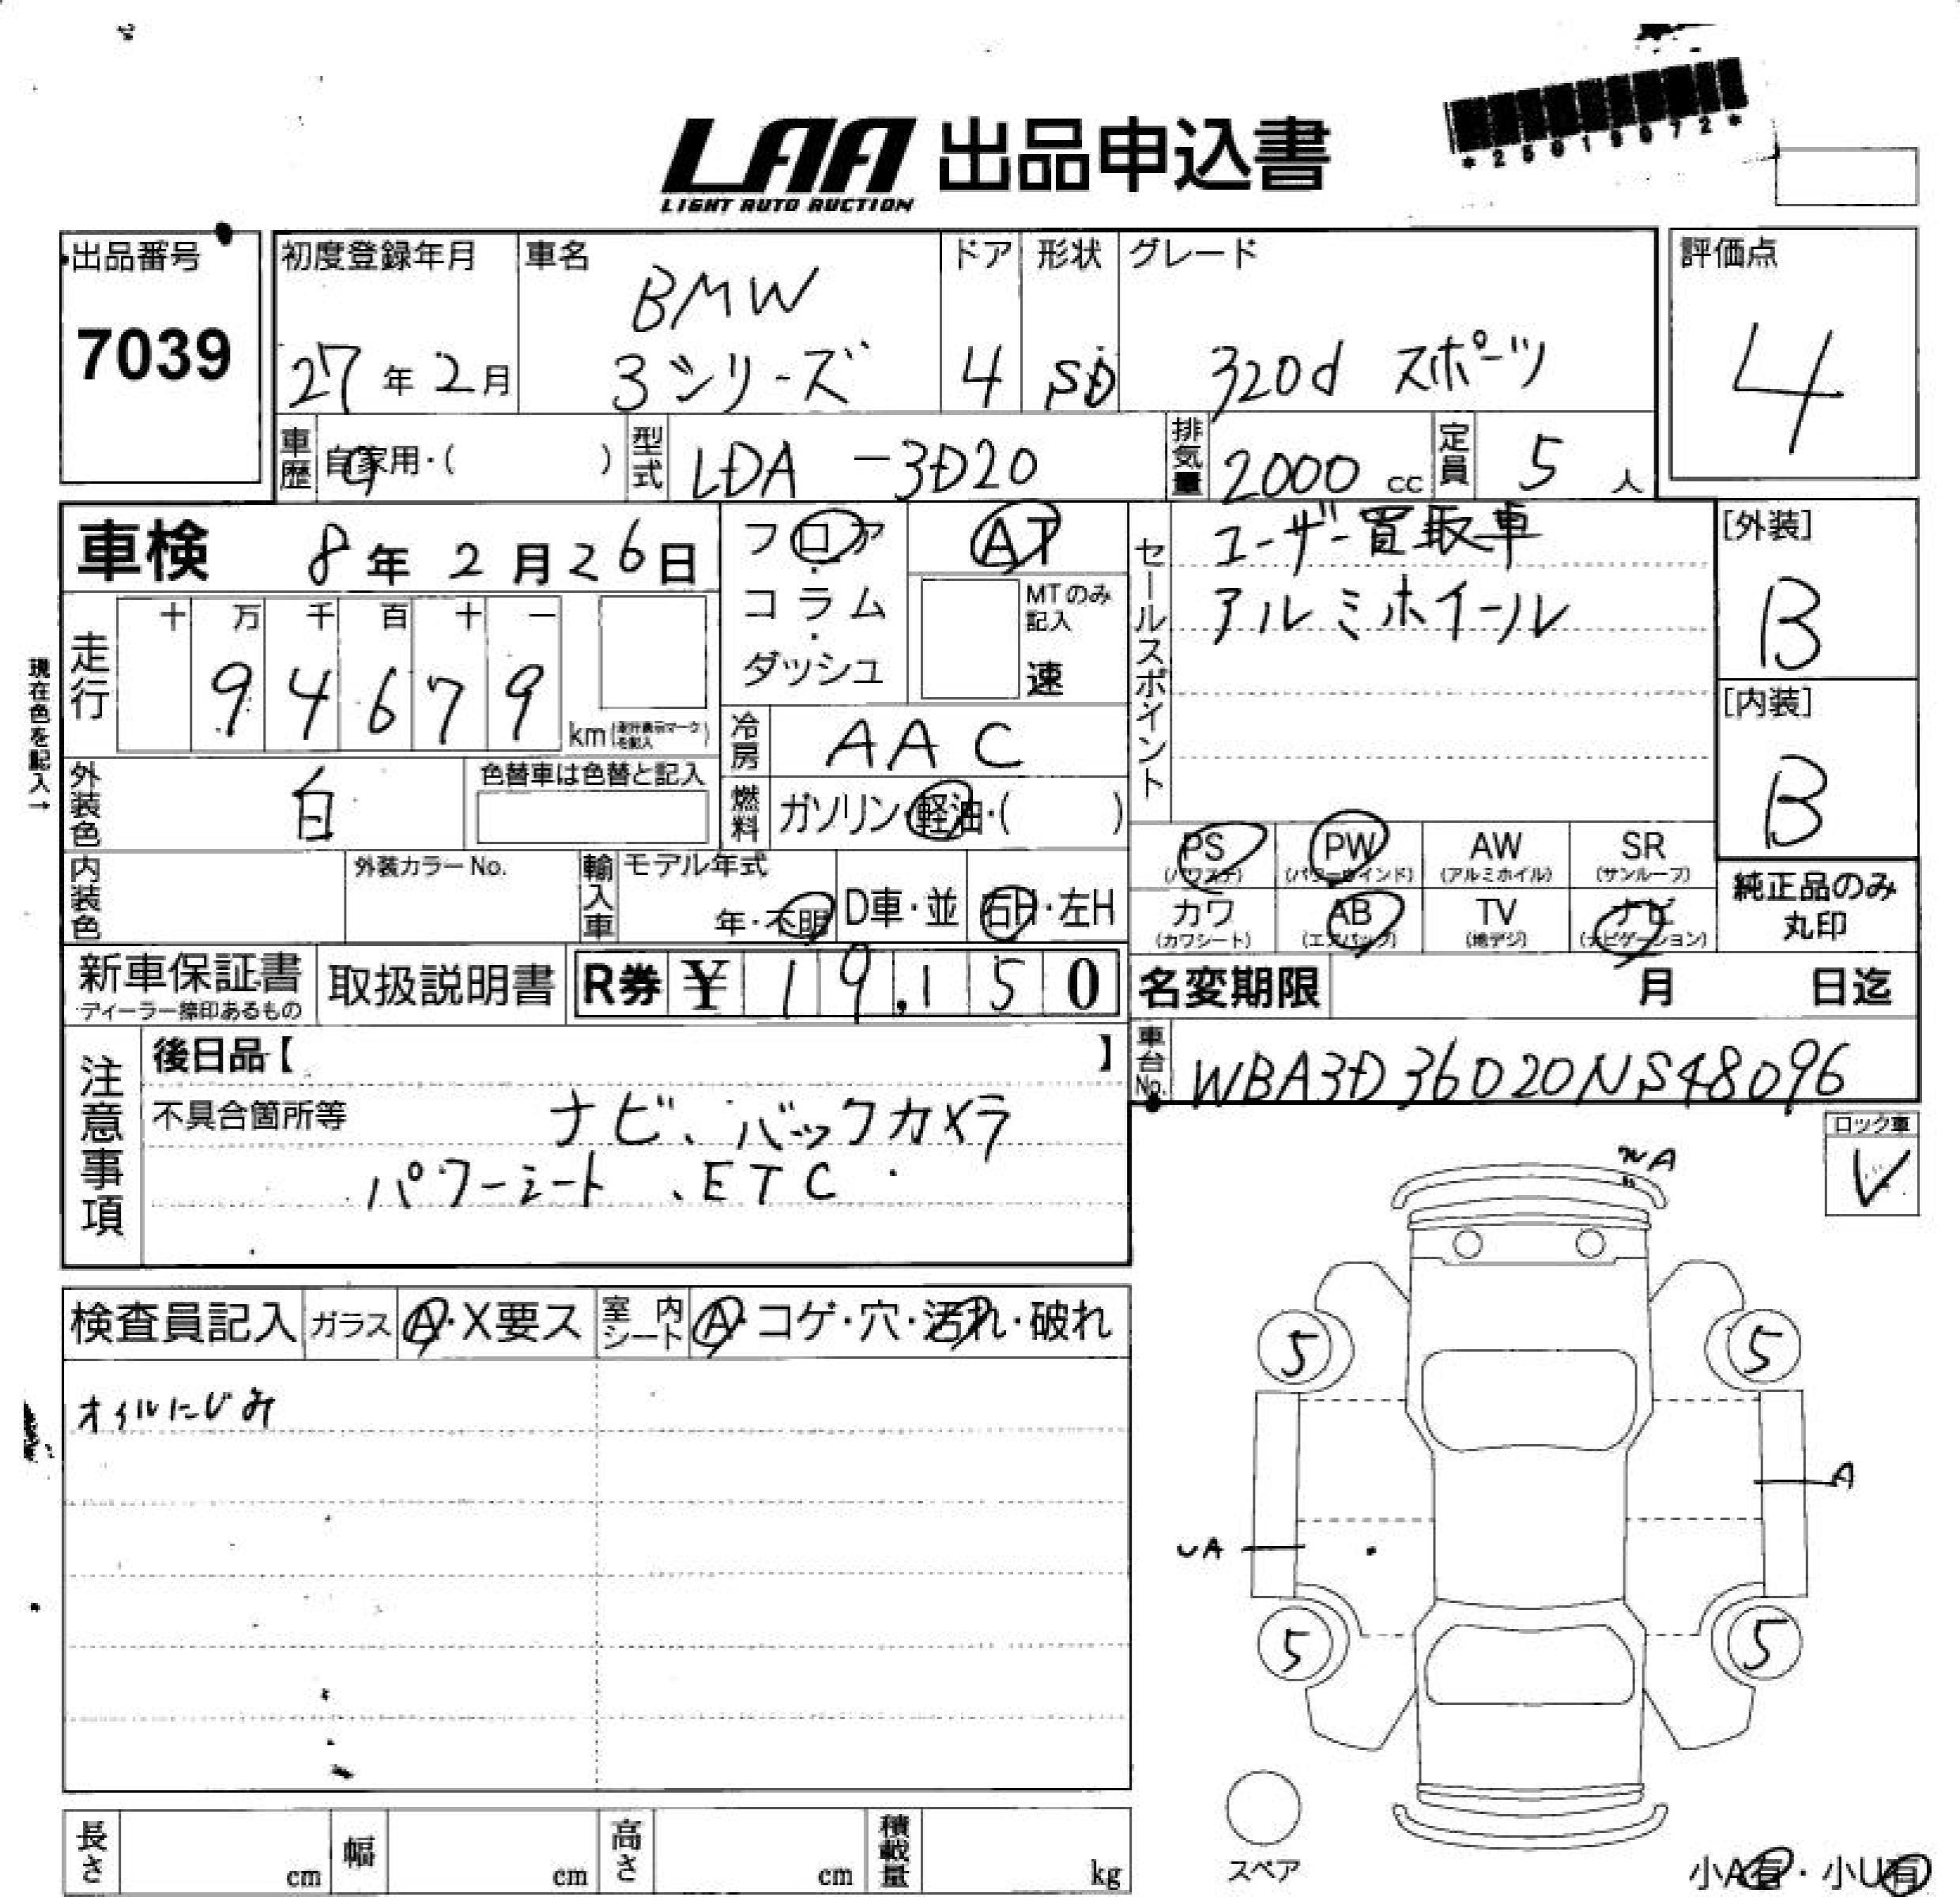 *25019072*
LAA 出品申込書
LIGHT AUTO AUCTION
出品番号
7039
初度登録年月
27年2月
車名
BMW
3シリーズ
ドア
4
形状
SD
グレード
320d スポーツ
評価点
4
車歴 自家用・( )
型式 LDA-3D20
排気量 2000 cc
定員 5人
車検 8年2月26日
フロア・コラム・ダッシュ
AT
MTのみ記入
速
セールスポイント
ユーザー買取車
アルミホイール
[外装]
B
[内装]
B
現在色を記入→
走行
十 万 千 百 十 一
9 4 6 7 9
km(走行表示マークを記入)
冷房 AAC
外装色 白
色替車は色替と記入
燃料 ガソリン・軽油・( )
PS (パワステ)
PW (パワーウインド)
AW (アルミホイル)
SR (サンルーフ)
カワ (カワシート)
AB (エアバッグ)
TV (地デジ)
ナビ (ナビゲーション)
純正品のみ
丸印
内装色
外装カラーNo.
輸入車
モデル年式
年・不明
D車・並
右H・左H
新車保証書
ディーラー捺印あるもの
取扱説明書
R券 ¥ 19,150
名変期限 月 日迄
注意事項
後日品【 】
車台No. WBA3D36020NS48096
不具合箇所等 ナビ、バックカメラ
パワーシート、ETC
ロック車
V
検査員記入
ガラス A・X要ス
室内シート A・コゲ・穴・汚れ・破れ
オイルにじみ
XA
5 5
A
UA
5 5
スペア
小A有・小U有
長さ cm
幅 cm
高さ cm
積載量 kg